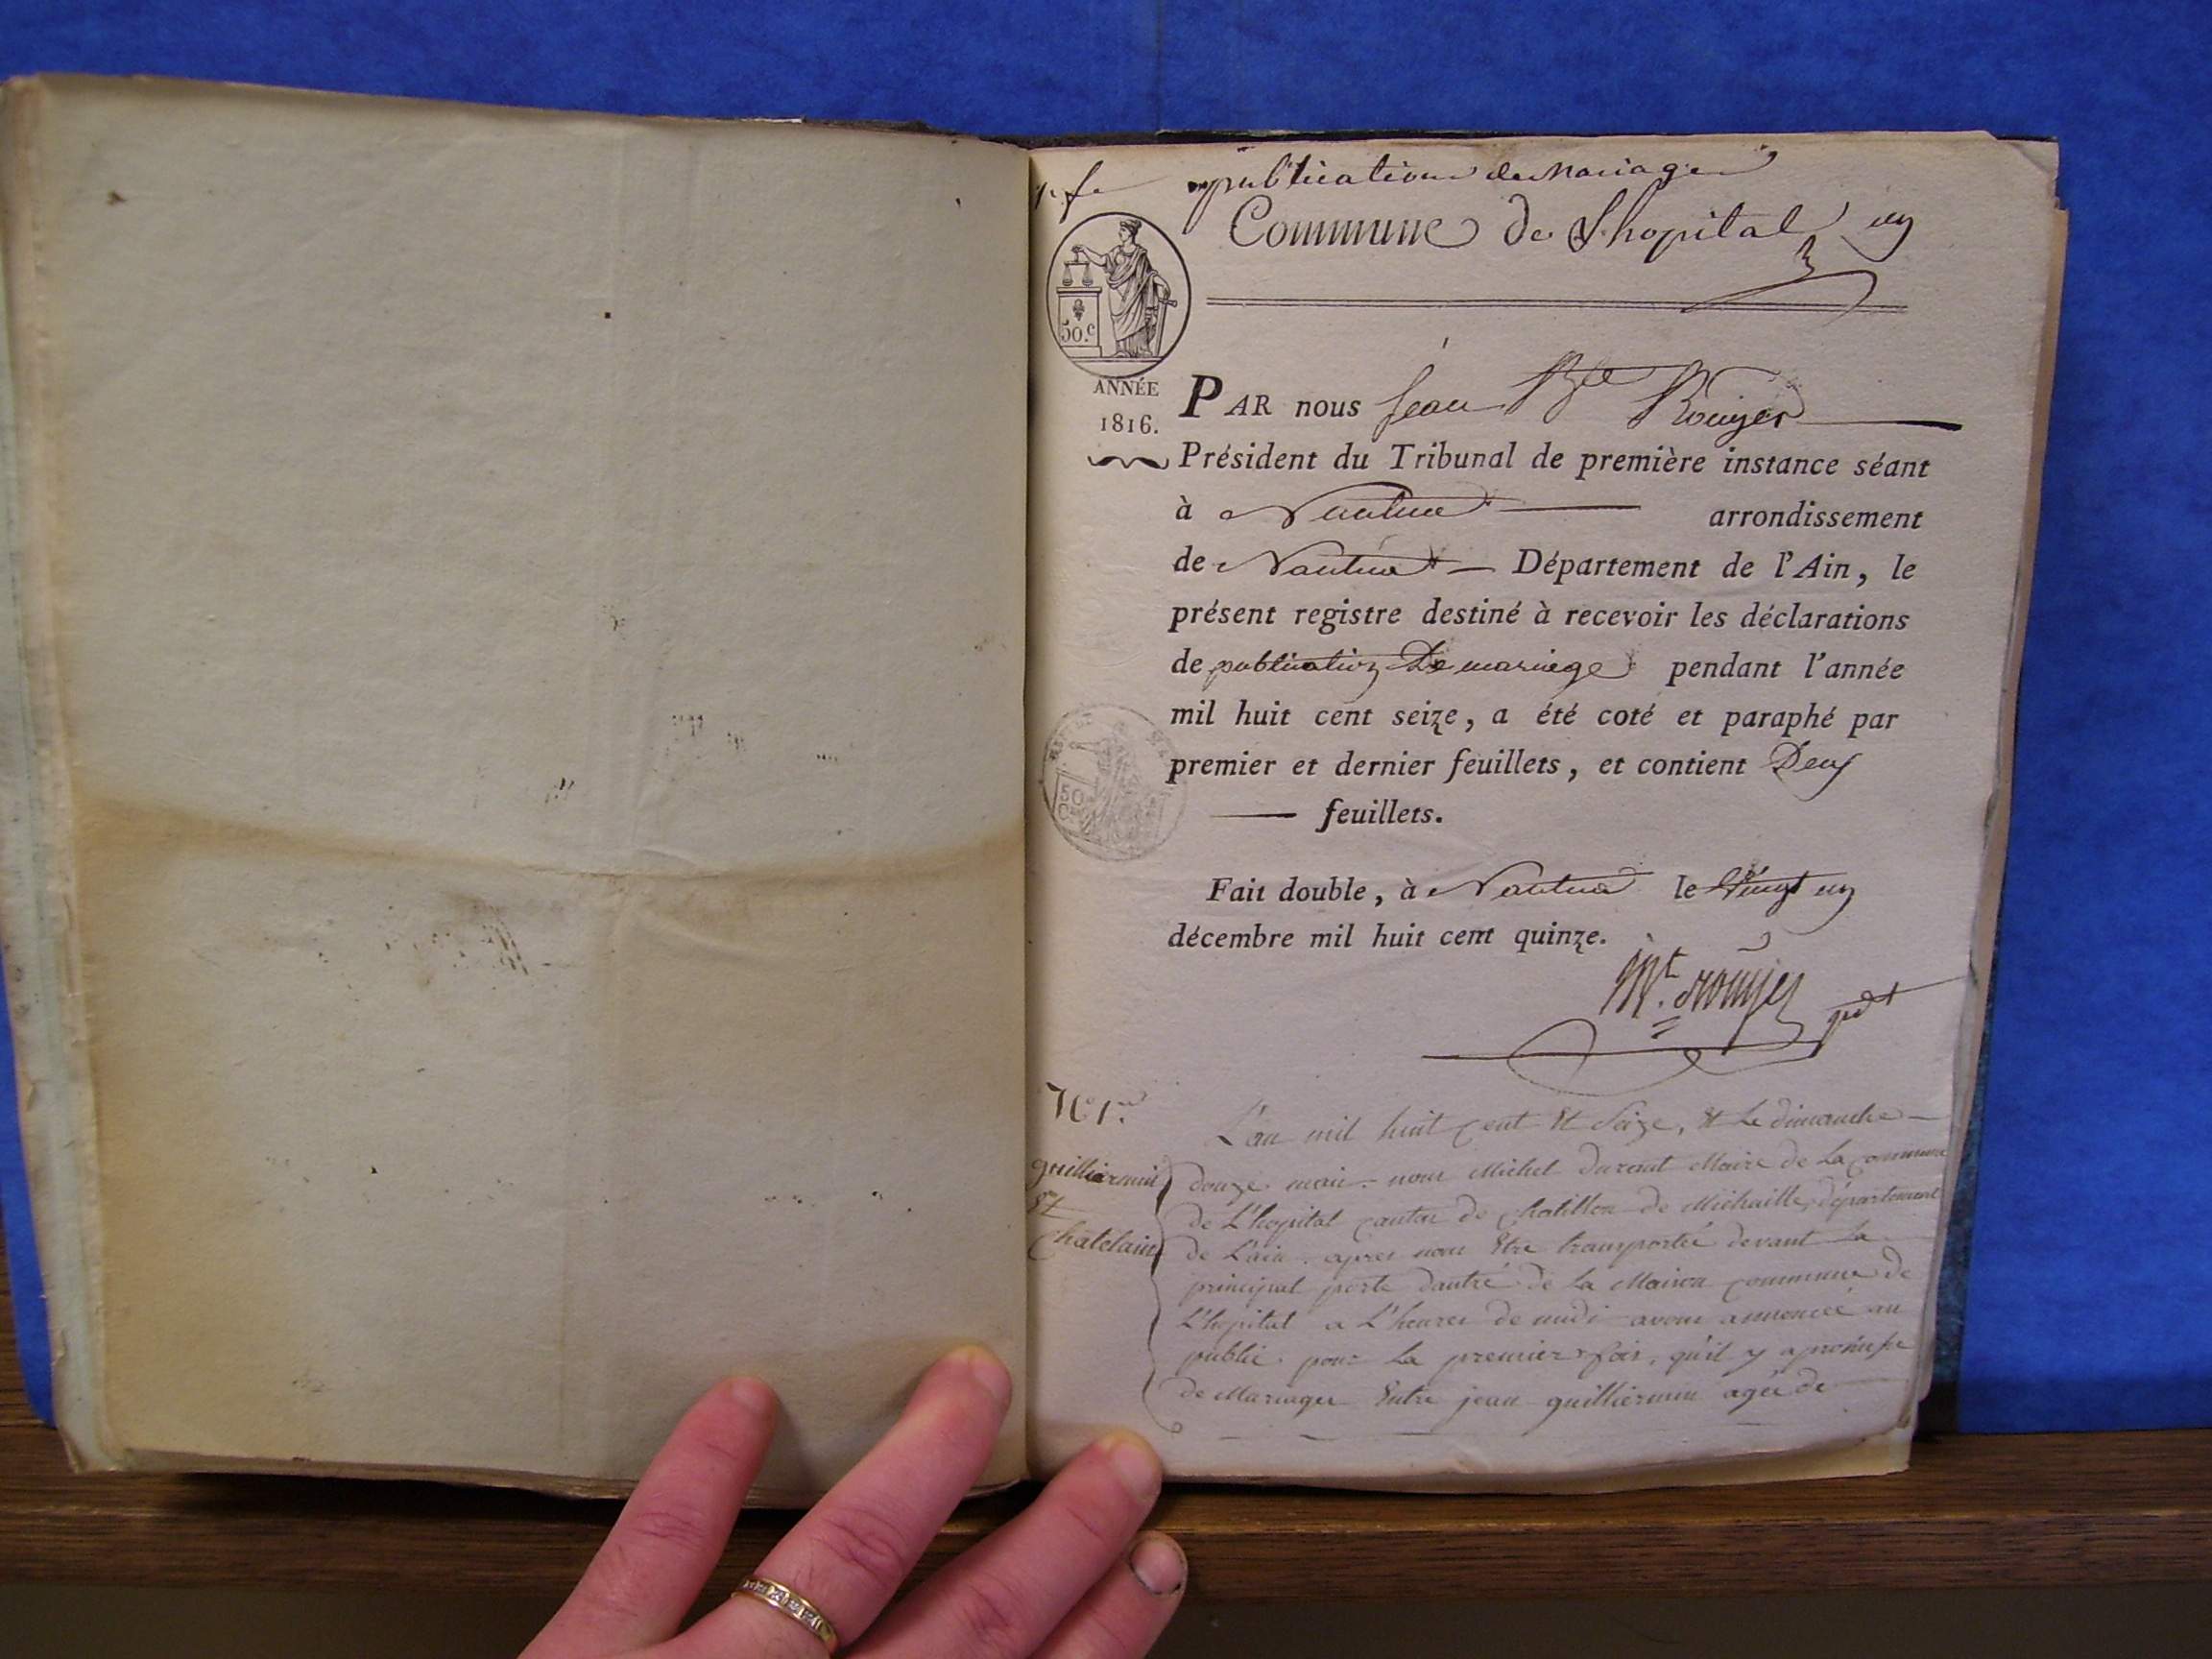 1er f.
publication de Mariage
Commune de L'hopital un
50.c
ANNÉE
1816.
PAR nous Jean Bte Rouyer
Président du Tribunal de première instance séant
à Nantua arrondissement
de Nantua Département de l'Ain, le
présent registre destiné à recevoir les déclarations
de publication De mariage pendant l'année
mil huit cent seize, a été coté et paraphé par
premier et dernier feuillets, et contient Deux
feuillets.
50
Fait double, à Nantua le Vingt un
décembre mil huit cent quinze.
rouyer pdt
No 1er
guilliermin
Et
Chatelain
L'an mil huit cent Et Seize, Et Le dimanche
douze mai nous Michel durant Maire de La commune
de L'hopital canton de chatillon de Michaille, département
de L'ain. apres nous Etre transporté devant La
principal porte dantré de La Maison commune de
L'hopital a L'heures de midi avons annoncé au
public pour La premier fois, qu'il y a promesse
de Mariages Entre jean guilliermin agée de